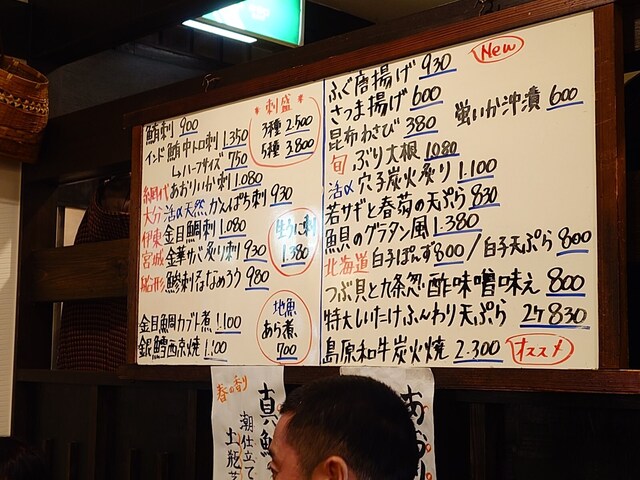 鮪刺 900
インド鮪中トロ刺 1.350
↳ハーフサイズ 750
網代 あおりいか刺 1.080
大分 活〆天然かんぱち刺 930
伊東 金目鯛刺 1.080
宮城 金華サバ炙り刺 930
鯵刺&なめろう 980
金目鯛カブト煮 1.100
銀鱈西京焼 1.100
* 刺盛 *
3種 2.500
5種 3.800
生うに刺
1.380
地魚
あら煮
700
ふぐ唐揚げ 930
New
さつま揚げ 600
昆布わさび 380
蛍いか沖漬 600
旬 ぶり大根 1080
活〆 穴子炭火炙り 1.100
若サギと春菊の天ぷら 830
魚貝のグラタン風 1.380
北海道 白子ぽんず 800/白子天ぷら 800
つぶ貝と九条葱・酢味噌味え 800
特大しいたけふんわり天ぷら 2ケ 830
島原和牛炭火焼 2.300
オススメ
春の香り
真鯛
潮仕立て
土瓶蒸
あおり